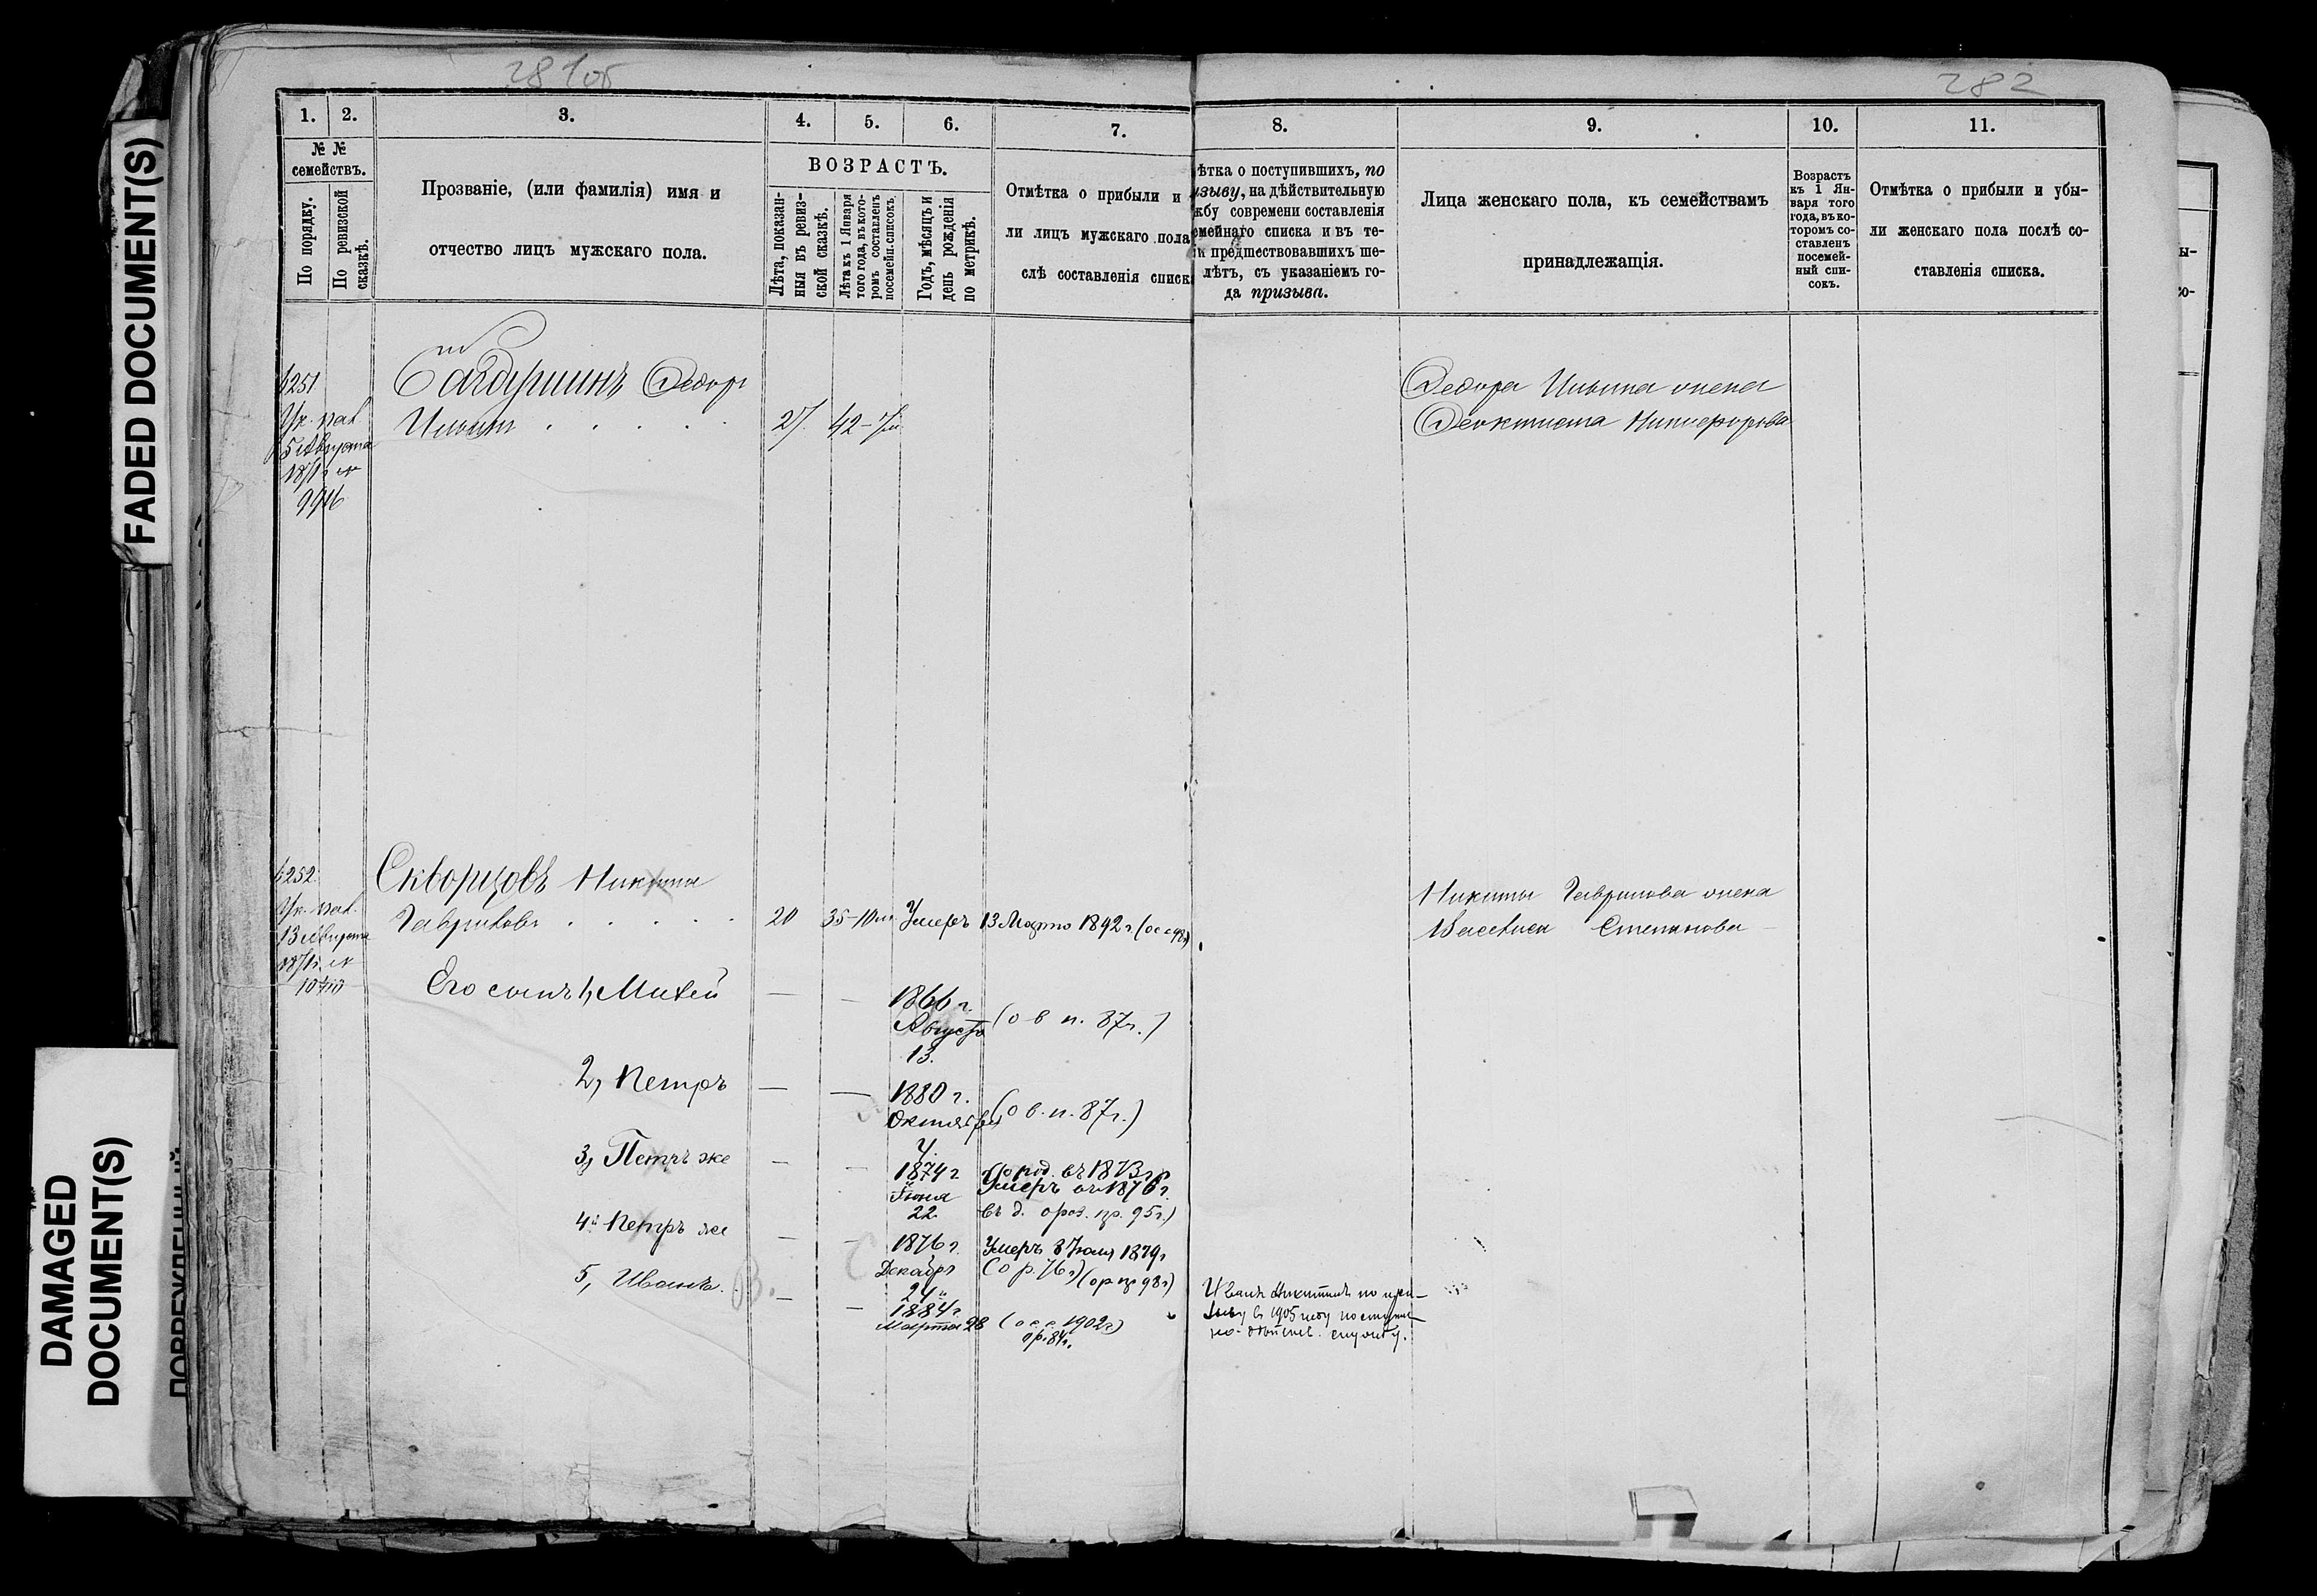 281об
282
FADED DOCUMENT(S)
DAMAGED
DOCUMENT(S)
1.
2.
3.
4.
5.
6.
7.
№ №
семействъ.
По порядку.
По ревизской
сказкѣ.
Прозваніе, (или фамилія) имя и
отчество лицъ мужскаго пола.
ВОЗРАСТЪ.
Лѣта, показан-
ныя въ ревиз-
ской сказкѣ.
Лѣта къ 1 Января
того года, въ кото-
ромъ составленъ
посемейн. списокъ.
Годъ, мѣсяцъ и
день рожденія
по метрикѣ.
Отмѣтка о прибыли и
ли лицъ мужскаго пола
слѣ составленія списк
8.
9.
10.
11.
ѣтка о поступившихъ, по
изыву, на дѣйствительную
жбу современи составленія
емейнаго списка и въ те-
и предшествовавшихъ ше-
лѣтъ, съ указаніемъ го-
да призыва.
Лица женскаго пола, къ семействамъ
принадлежащія.
Возрастъ
къ 1 Ян-
варя того
года, въ ко-
торомъ со-
ставленъ
посемей-
ный спи-
сокъ.
Отмѣтка о прибыли и убы-
ли женскаго пола послѣ со-
ставленія списка.
251
Ук. пал
5
9916
Ѳедоръ
Ильинъ
27 42-7м
Ѳедора Ильина жена
Ѳеоктиста Никифорова
252
Ук. пал.
13
Скворцовъ Никита
Гавриловъ
20 35-10м. Умеръ 13 Марта 1892 г.
Никиты Гаврилова жена
Василиса Степанова
Его сынъ 1, Михей
1866 г.
Августа
13.
(о в п. 87г.)
2, Петръ
1880 г.
Октября
(о в. п. 87г.)
3, Петръ же
1874 г
Іюня
22
род. въ 1873 г
Умеръ въ 1876 г.
пр. 95г.)
4й Петръ же
1876 г.
Декабря
24
Умеръ 3 Іюля 1879г
(о р. 76г) (о р пр 98г)
5, Иванъ.
1884 г
Марта 28
1902г)
о р. 84г.
Иванъ Никитинъ по при-
зыву в 1905 году поступил
на дѣйств. службу.